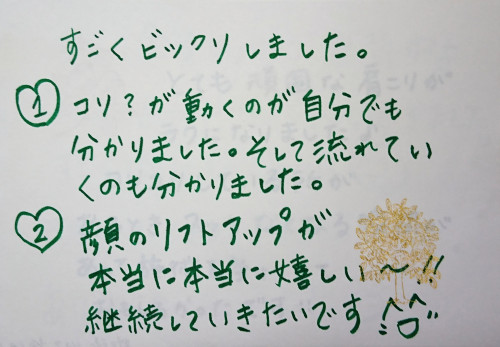 すごくビックリしました。
① コリ？が動くのが自分でも
分かりました。そして流れてい
くのも分かりました。
② 顔のリフトアップが
本当に本当に嬉しい〜!!
継続していきたいです